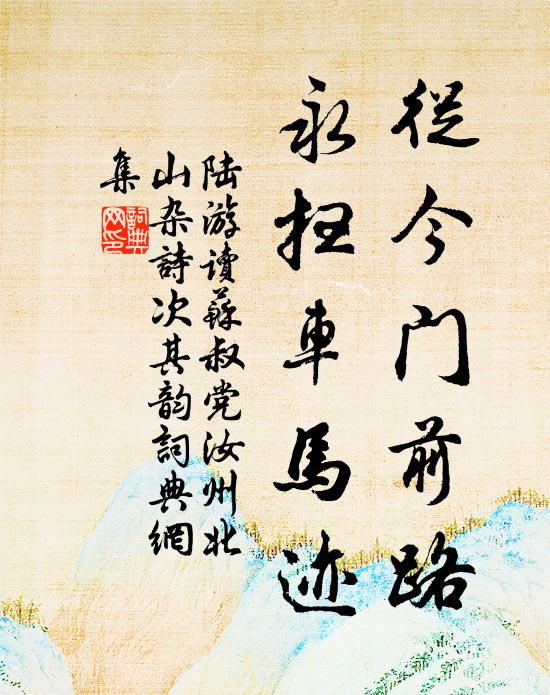 從今門前路
永扫車馬迹
陆游读蘇叔党汝州北
山杂詩次其韵詞典網
集
詞典
网印